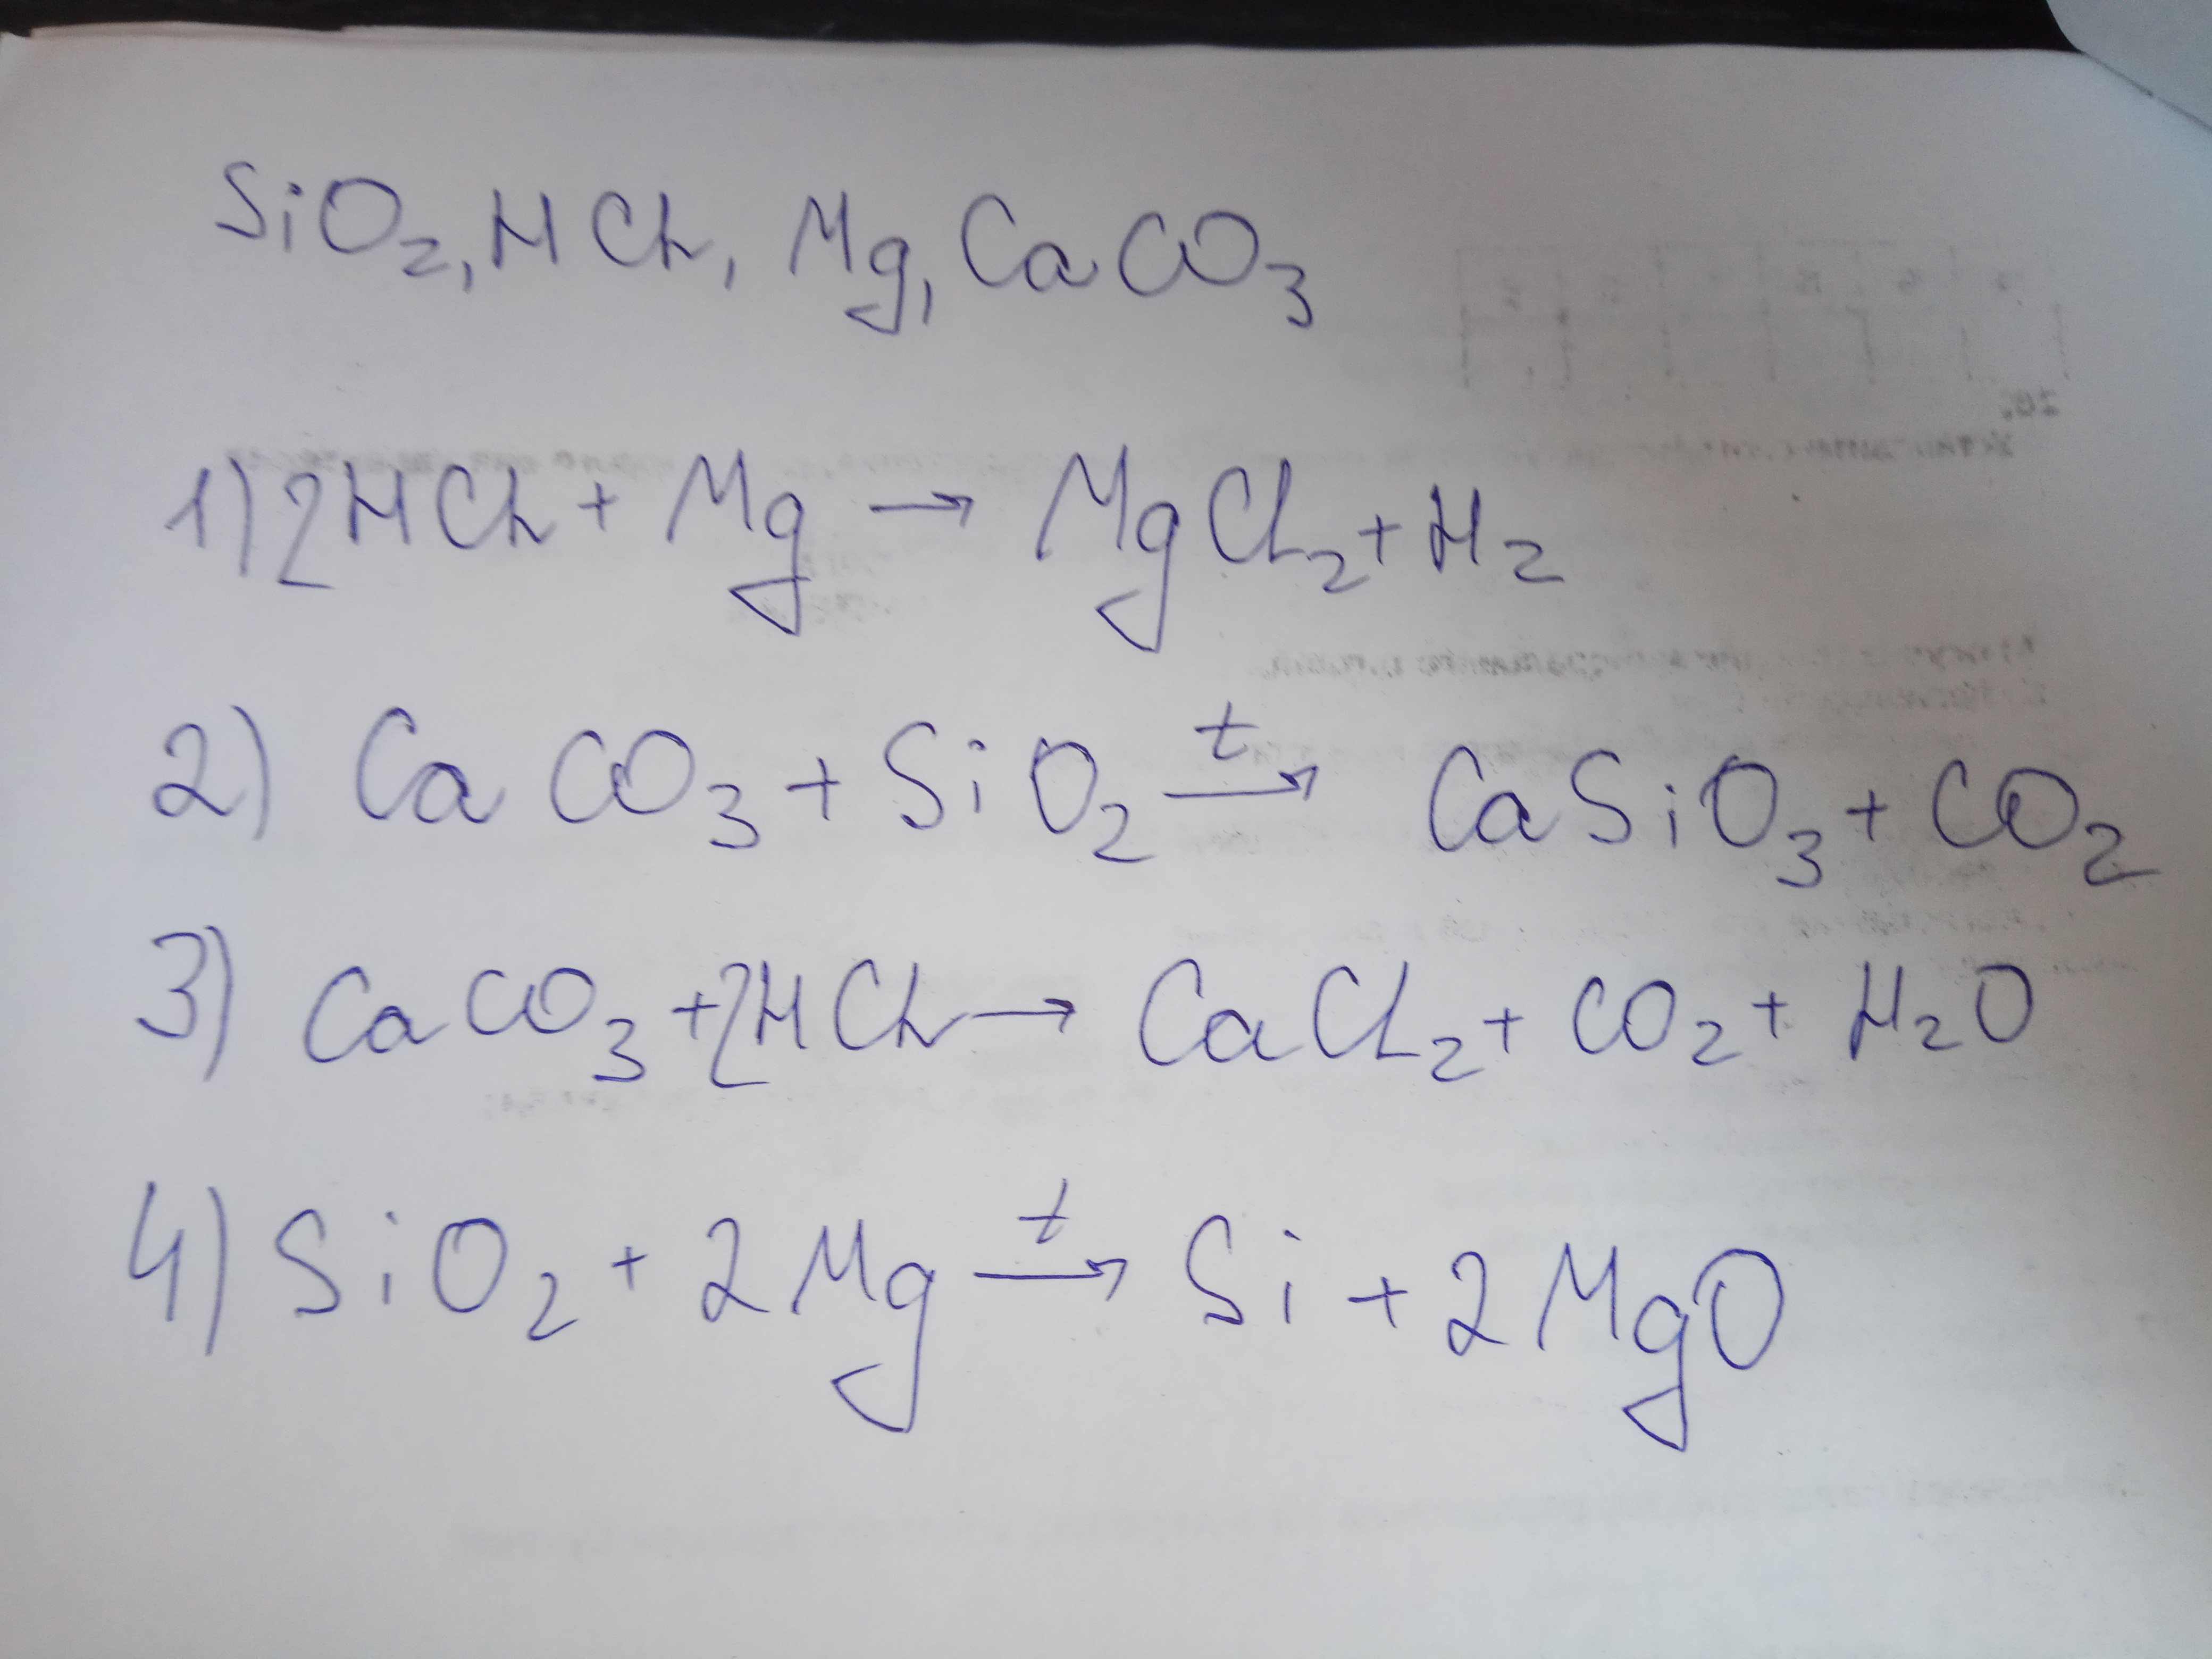 SiO₂, HCl, Mg, CaCO₃
1) 2HCl + Mg → MgCl₂ + H₂
2) CaCO₃ + SiO₂ →ᵗ CaSiO₃ + CO₂
3) CaCO₃ + 2HCl → CaCl₂ + CO₂ + H₂O
4) SiO₂ + 2Mg →ᵗ Si + 2MgO